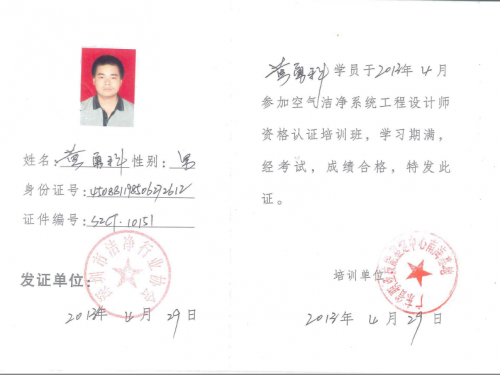 姓名：黄勇科 性别：男
身份证号：
证件编号：SZCJ-10151
深圳市洁净行业协会
发证单位：
2013年 4月 29日
黄勇科学员于2013年4月
参加空气洁净系统工程设计师
资格认证培训班，学习期满，
经考试，成绩合格，特发此
证。
培训单位
2013年 4月 29日